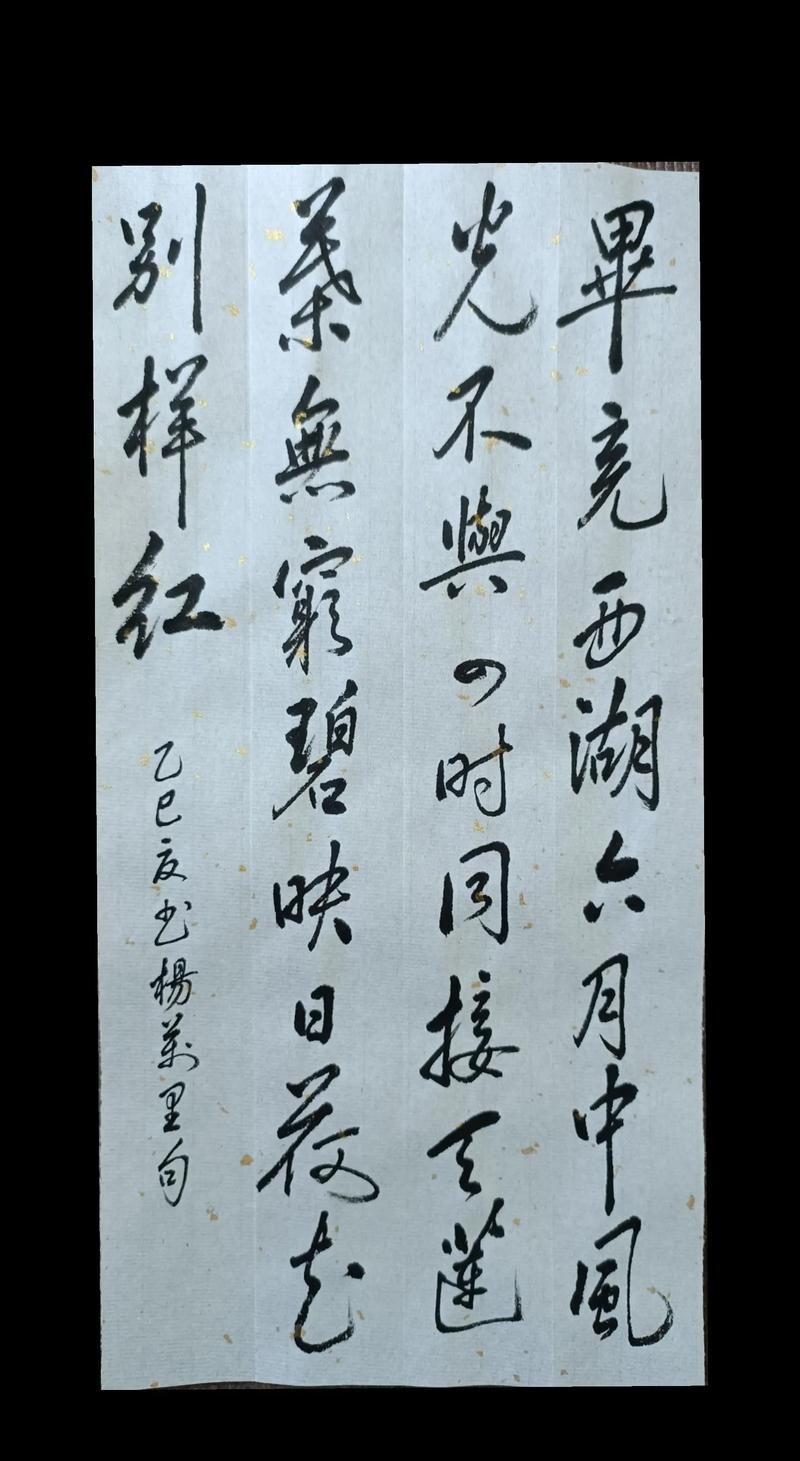 畢竟西湖六月中風
光不與四时同接天蓮
葉無窮碧映日荷花
别样红
乙巳夏书楊萬里句